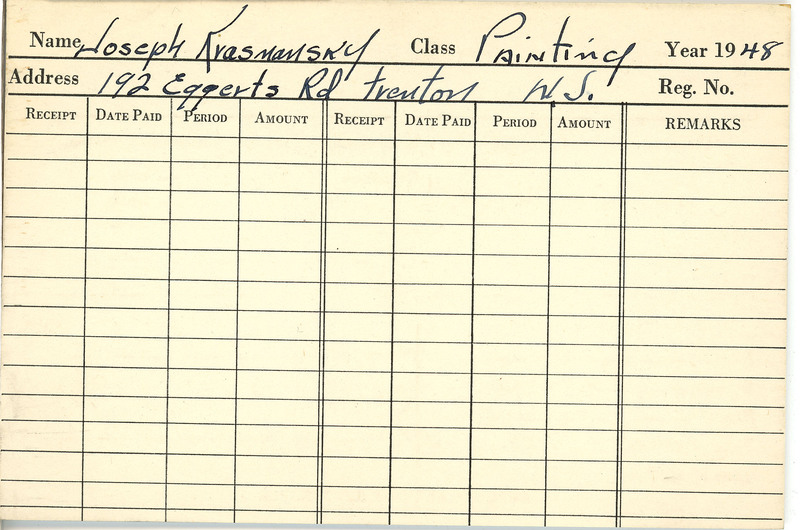 Name Joseph Krasnansky Class Painting Year 1948
Address 192 Eggerts Rd Trenton N.J. Reg. No.
RECEIPT DATE PAID PERIOD AMOUNT RECEIPT DATE PAID PERIOD AMOUNT REMARKS